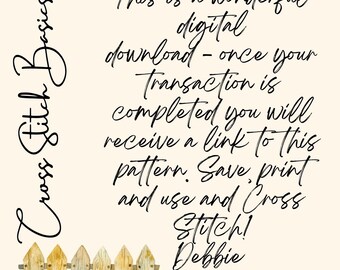 Cross Stitch Basics
This is a wonderful
digital
download - once your
transaction is
completed you will
receive a link to this
pattern. Save, print
and use and Cross
Stitch!
Debbie